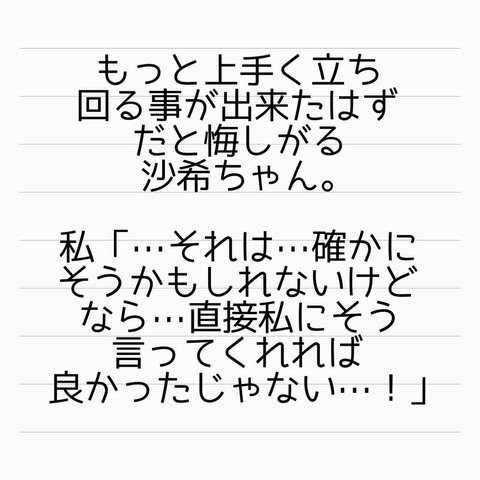 もっと上手く立ち
回る事が出来たはず
だと悔しがる
沙希ちゃん。
私「…それは…確かに
そうかもしれないけど
なら…直接私にそう
言ってくれれば
良かったじゃない…！」